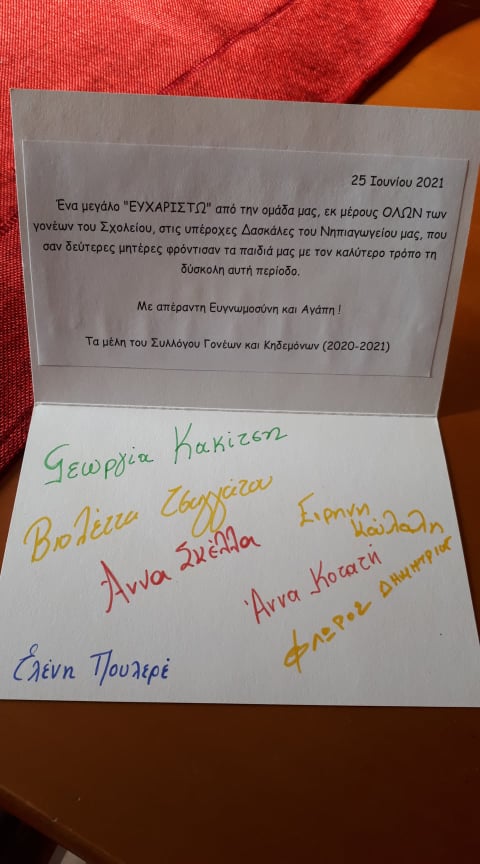 25 Ιουνίου 2021
Ένα μεγάλο "ΕΥΧΑΡΙΣΤΩ" από την ομάδα μας, εκ μέρους ΟΛΩΝ των
γονέων του Σχολείου, στις υπέροχες Δασκάλες του Νηπιαγωγείου μας, που
σαν δεύτερες μητέρες φρόντισαν τα παιδιά μας με τον καλύτερο τρόπο τη
δύσκολη αυτή περίοδο.
Με απέραντη Ευγνωμοσύνη και Αγάπη !
Τα μέλη του Συλλόγου Γονέων και Κηδεμόνων (2020-2021)
Γεωργία Κακίτση
Βιολέττα Τσαγγάτου
Ειρήνη
Κούλαλη
Άννα Σκέλλα
Άννα Κοτατή
ΦΛΩΡΟΣ ΔΗΜΗΤΡΙΟΣ
Ελένη Πουλερέ